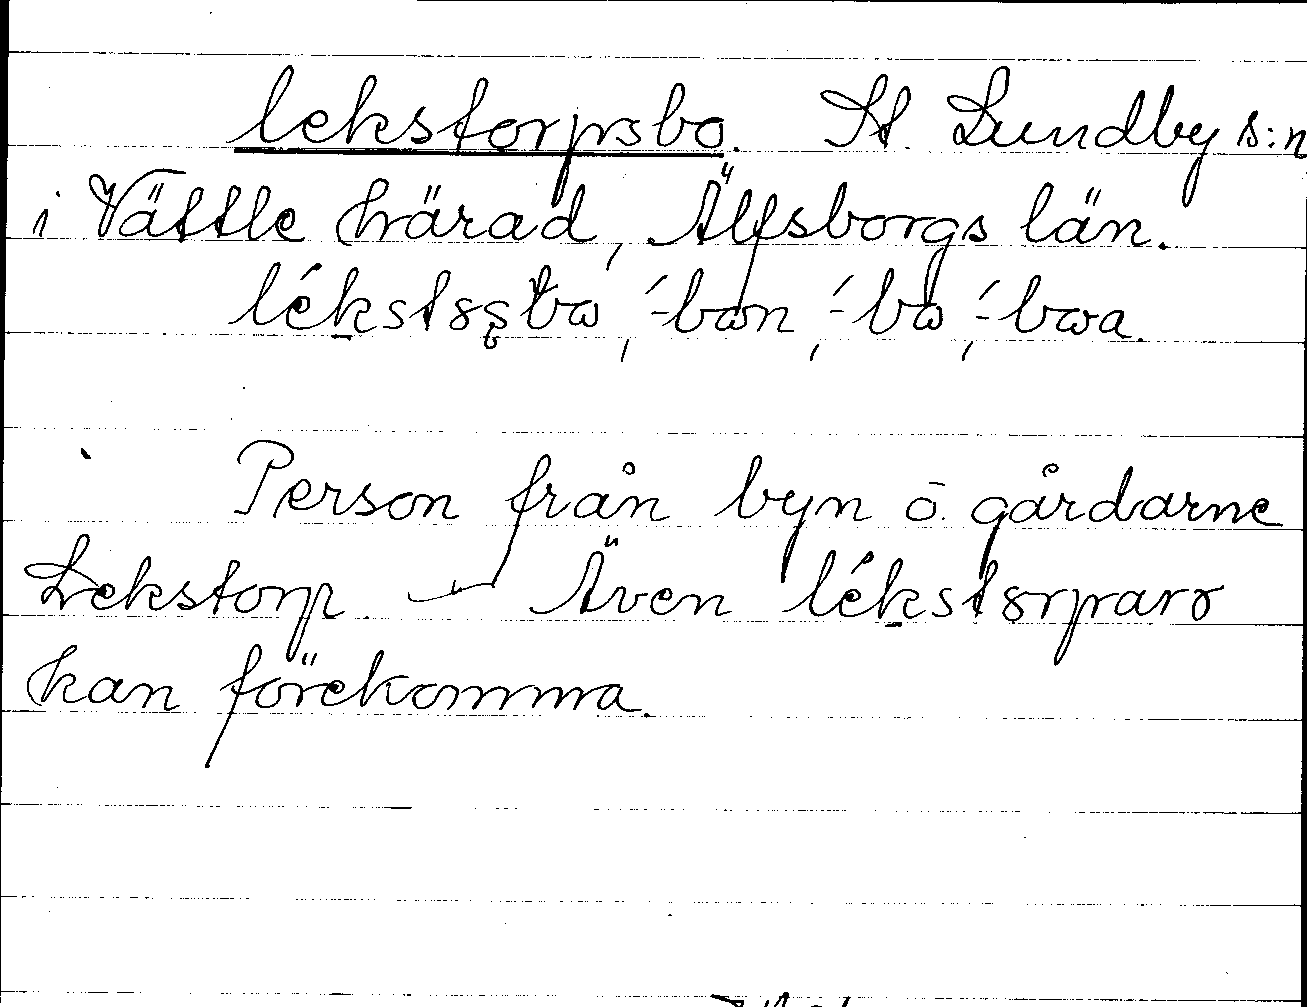 lekstorpsbo. St. Lundby s:n
i Vättle härad, Älfsborgs län.
-bon, -bo, -boa.
Person från byn o. gårdarne
Lekstorp – Även lékstorparo
kan förekomma.